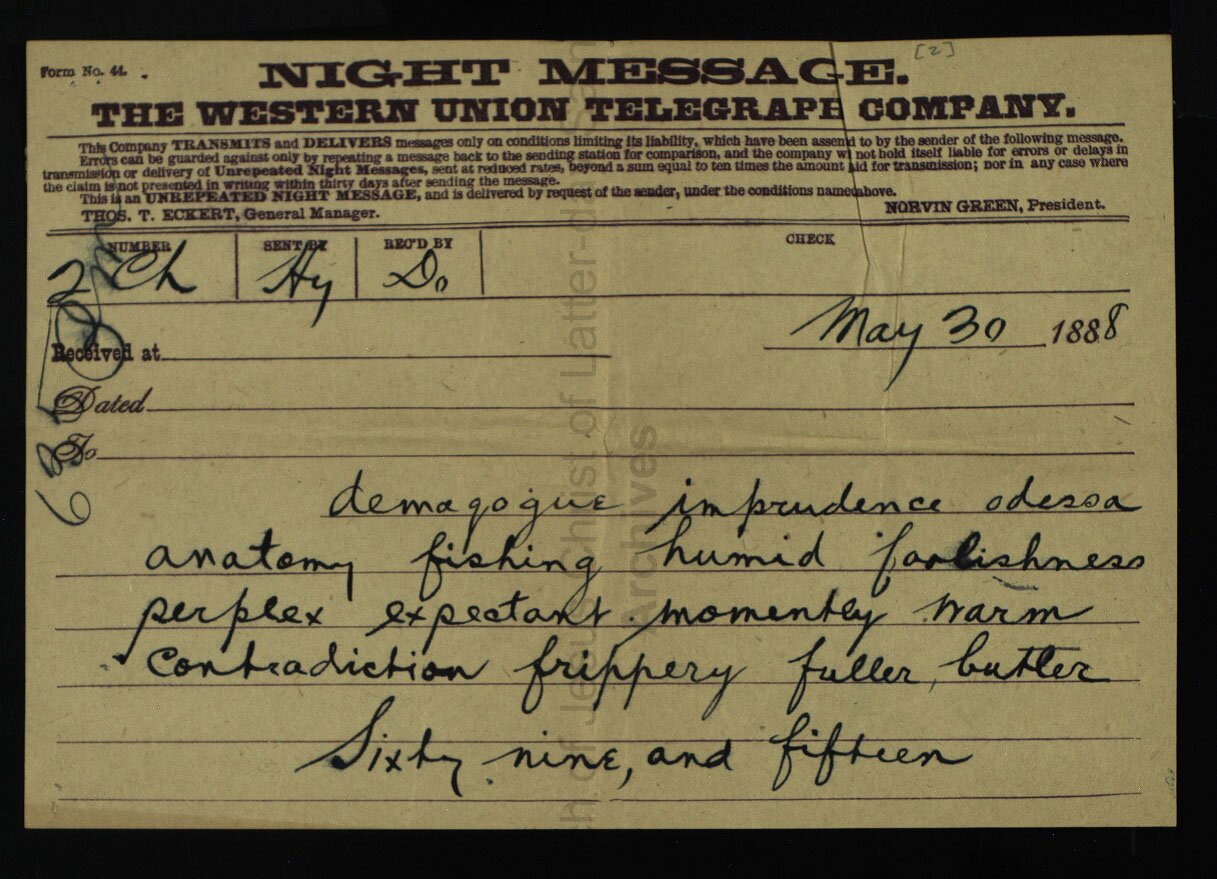 [2]
Form No. 44.
NIGHT MESSAGE.
THE WESTERN UNION TELEGRAPH COMPANY.
This Company TRANSMITS and DELIVERS messages only on conditions limiting its liability, which have been assen d to by the sender of the following message.
Errors can be guarded against only by repeating a message back to the sending station for comparison, and the company w not hold itself liable for errors or delays in
transmission or delivery of Unrepeated Night Messages, sent at reduced rates, beyond a sum equal to ten times the amount aid for transmission; nor in any case where
the claim is not presented in writing within thirty days after sending the message.
This is an UNREPEATED NIGHT MESSAGE, and is delivered by request of the sender, under the conditions named above.
THOS. T. ECKERT, General Manager.
NORVIN GREEN, President.
NUMBER SENT BY REC'D BY CHECK
2 Ch Hy Do
May 30 1888
Received at
Dated
To
demagogue imprudence odessa
anatomy fishing humid foolishness
perplex expectant momently warm
contradiction frippery fuller, butler
Sixty nine, and fifteen
ch of Jesus Christ of Latter-day Sain
Archives